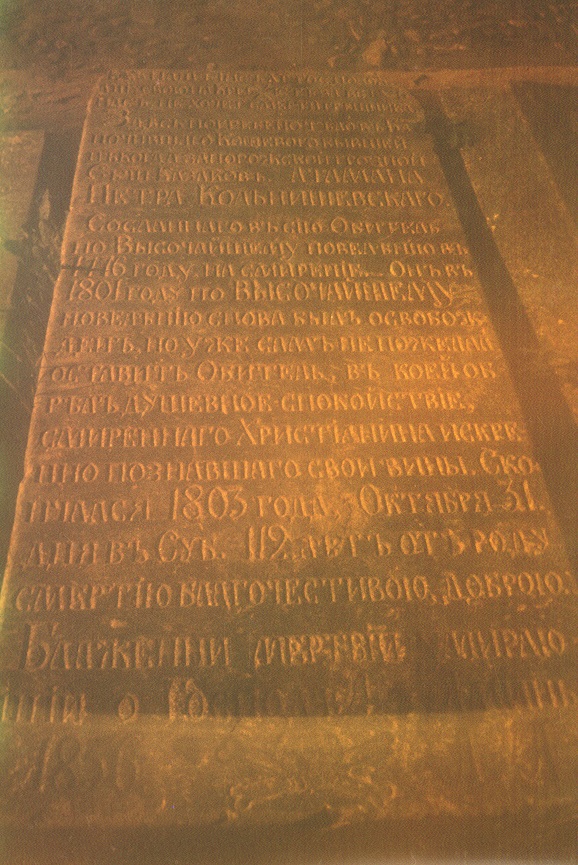 Здѣсь погребено тѣло въ Бо
почившаго Кошеваго бывшей
нѣкогда Запорожской грозной
Сѣчи Казаковъ Атамана
Петра Кольнишевскаго
сосланнаго въ сію Обитель
по Высочайшему повелѣнію въ
1776 году на смиреніе. Онъ въ
1801 году по Высочайшему
повелѣнію снова былъ освобож
денъ, но уже самъ не пожелал
оставить Обитель, въ коей об
рѣлъ душевное спокойствіе,
смиреннаго Христіанина искре
нно познавшаго свои вины. Ско
нчался 1803 года, Октября 31.
дня въ Суб. 112 летъ отъ роду
смертію благочестивою, доброю.
Блаженни мертвіи умираю
щіи о Господѣ
1856